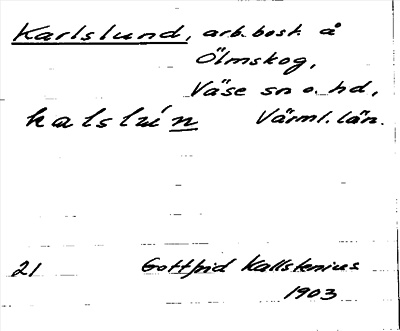 Karlslund, arb. bost. å
Ölmskog,
Väse sn o. hd,
kalslún Värml. län.
21 Gottfrid Kallstenius
1903